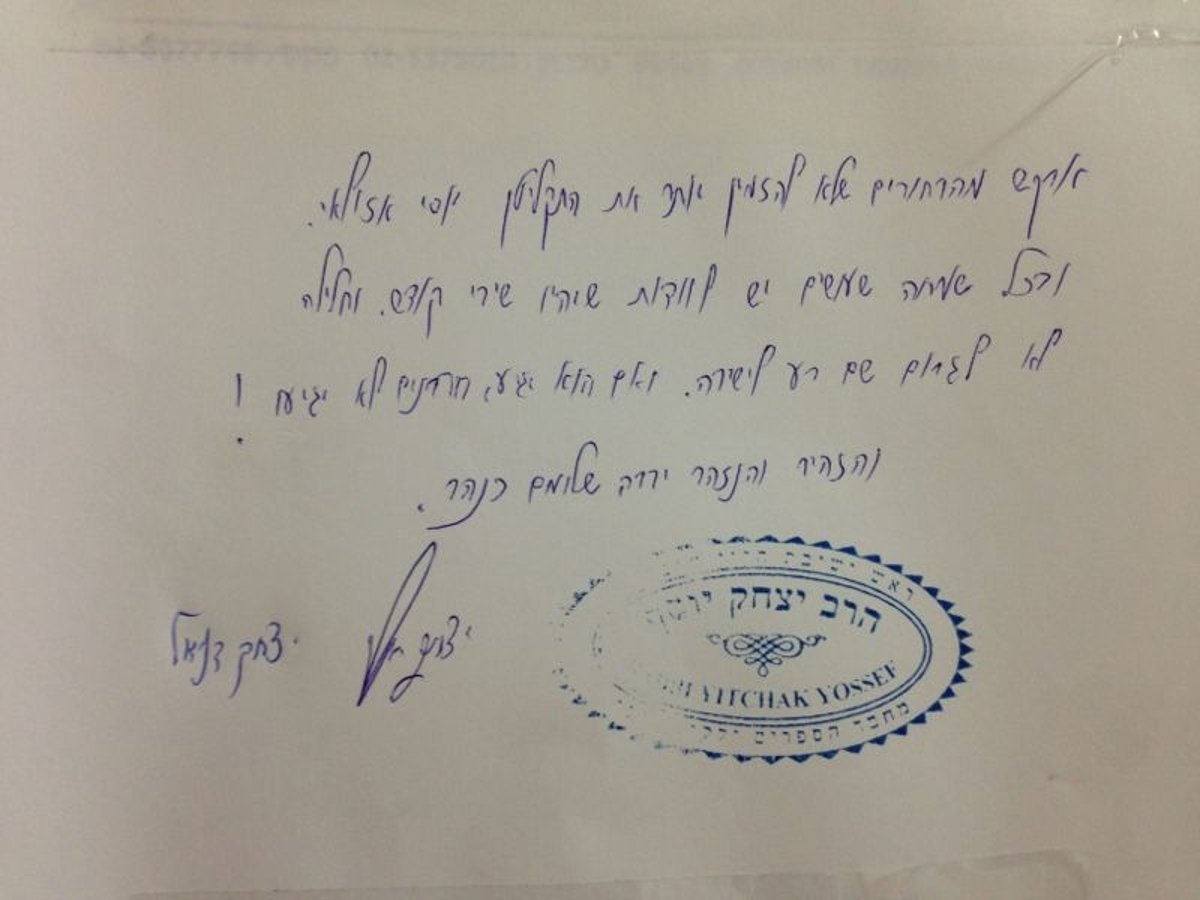 אבקש מהבחורים שלא להזמין יותר את התקליטן יוסי אזולאי.
ובכל שמחה שעושים יש לוודות שיהיו שירי קודש. וחלילה
לא לגרום שם רע לישיבה. ואם הוא יגיע, הרבנים לא יגיעו !
והזהיר והנזהר ירבה שלומם כנהר.
יצחק דניאל
ראש ישיבת
הרב יצחק יוסף
YITCHAK YOSSEF
מחבר הספרים ילקוט